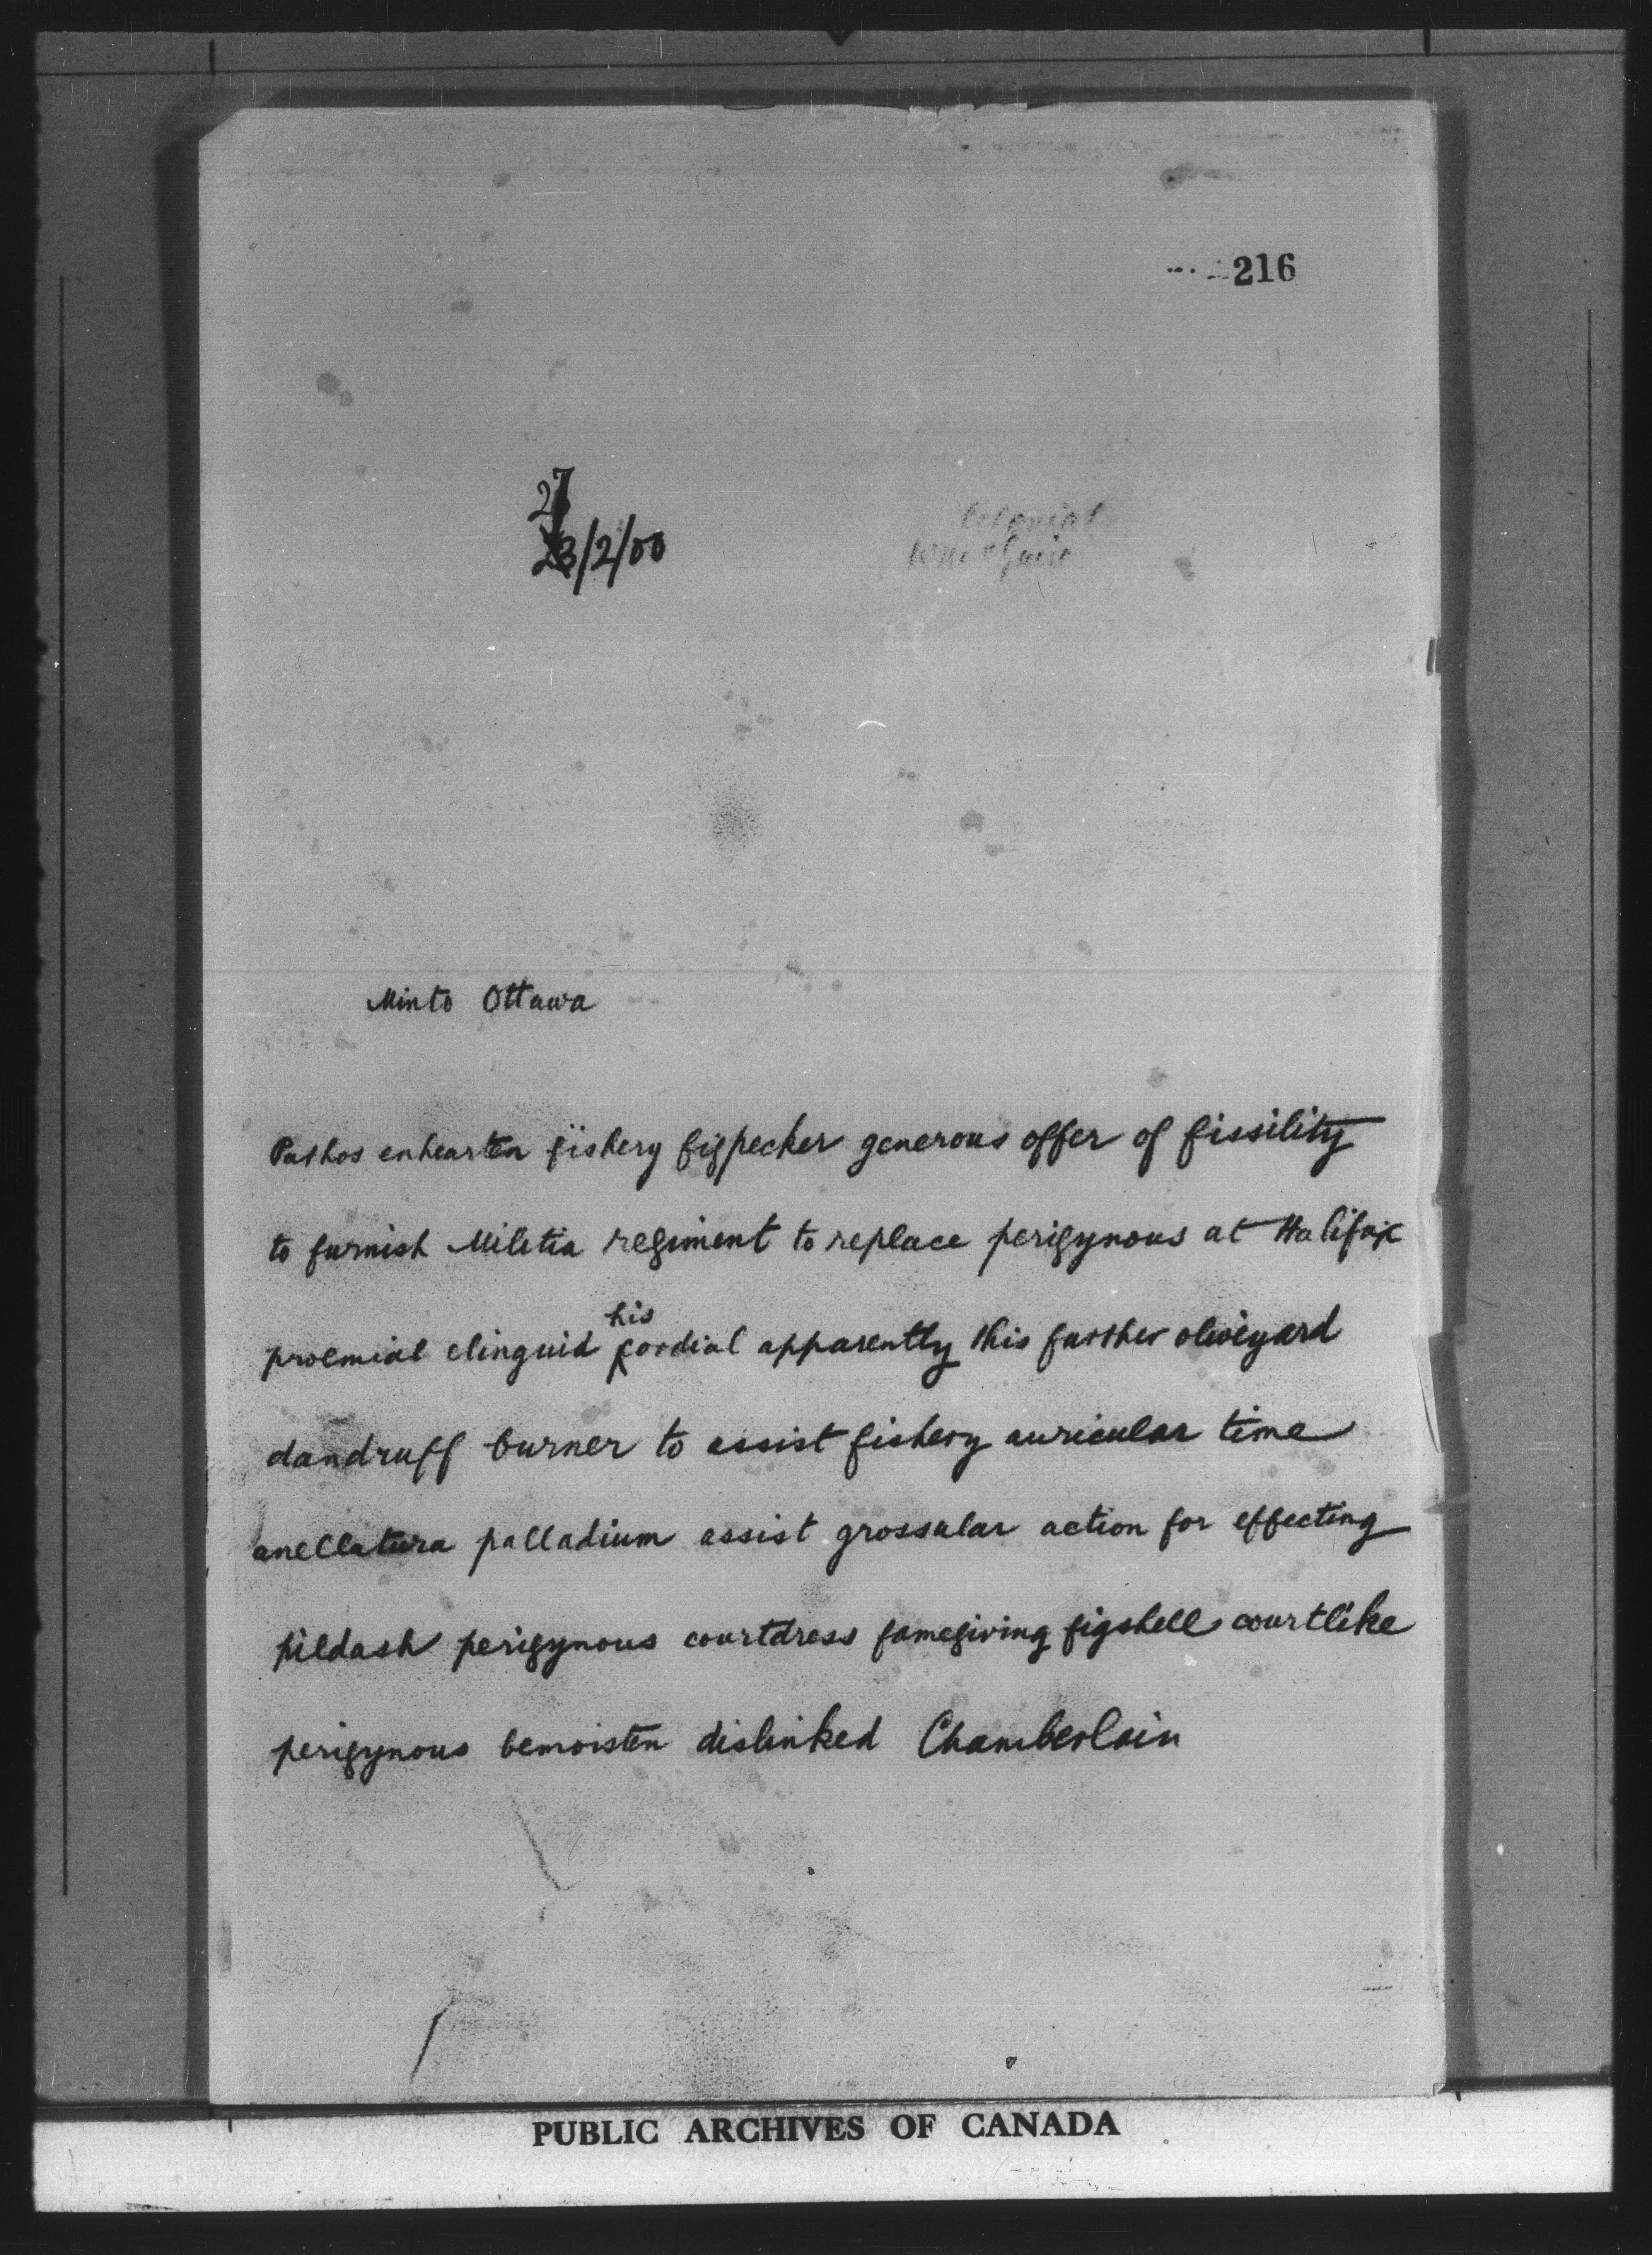 216
27
23/2/00
Colonial
Minto Ottawa
Pathos enhearten fishery figpecker generous offer of fissility
to furnish Militia regiment to replace perigynous at Halifax
proemial elinguid his cordial apparently this further oliveyard
dandruff burner to assist fishery auricular time
anellatura palladium assist grossular action for effecting
pildash perigynous courtdress famegiving figshell courtlike
perigynous bemoisten dislinked Chamberlain
PUBLIC ARCHIVES OF CANADA